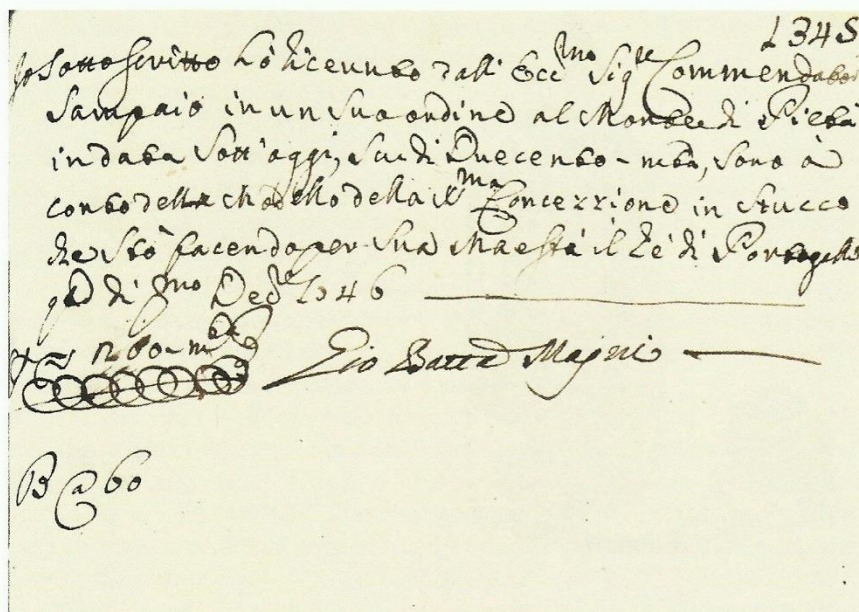 1345
Io sottoscritto hò riceuuto dall' Ecc.mo Sig.re Commendator
Sampaio in un suo ordine al Monte di Pietà
in data sott'aggi, scudi Duecento - mta, sono à
conto dell Modello della SS.ma Concezzione in stucco
che stò facendo per sua Maestà il Rè di Portogallo
q.to di p.mo Dec.e 1746
200 - mta
Gio Batta Majni
B @ 60